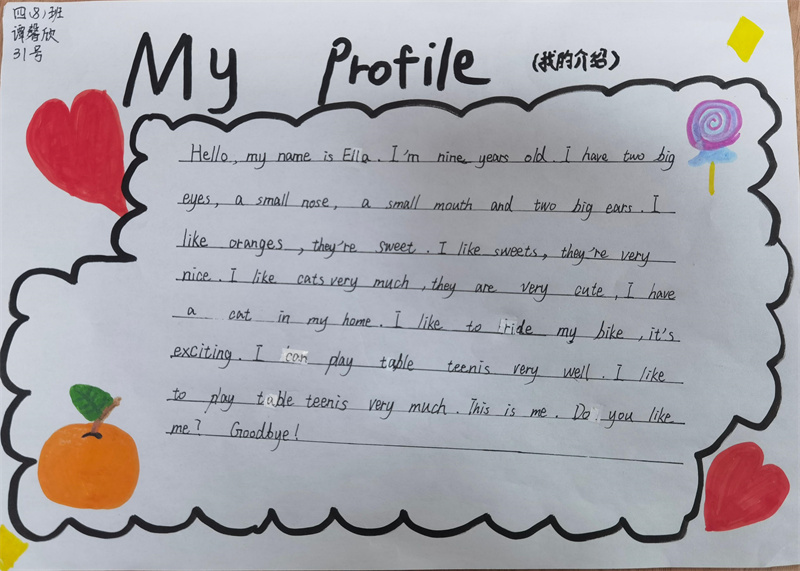 四(8)班
谭馨欣
31号
My Profile (我的介绍)
Hello, my name is Ella. I'm nine years old. I have two big
eyes, a small nose, a small mouth and two big ears. I
like oranges, they're sweet. I like sweets, they're very
nice. I like cats very much, they are very cute, I have
a cat in my home. I like to ride my bike, it's
exciting. I can play table teenis very well. I like
to play table teenis very much. This is me. Do you like
me? Goodbye!